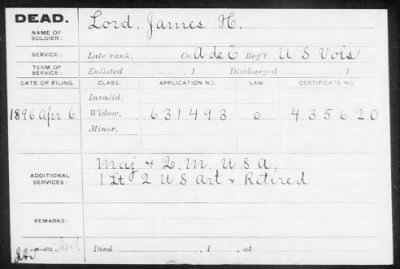 DEAD.
NAME OF SOLDIER:
Lord, James H.
SERVICE:
Late rank, Co. A de C Reg't U S Vols
TERM OF SERVICE:
Enlisted , 1 Discharged , 1
DATE OF FILING. CLASS. APPLICATION NO. LAW. CERTIFICATE NO.
Invalid,
1896 Apr 6 Widow, 631493 0 435620
Minor,
ADDITIONAL SERVICES:
Maj & Q. M. U S A.
1 Lt 2 U S Art & Retired
REMARKS:
Died , 1 , at